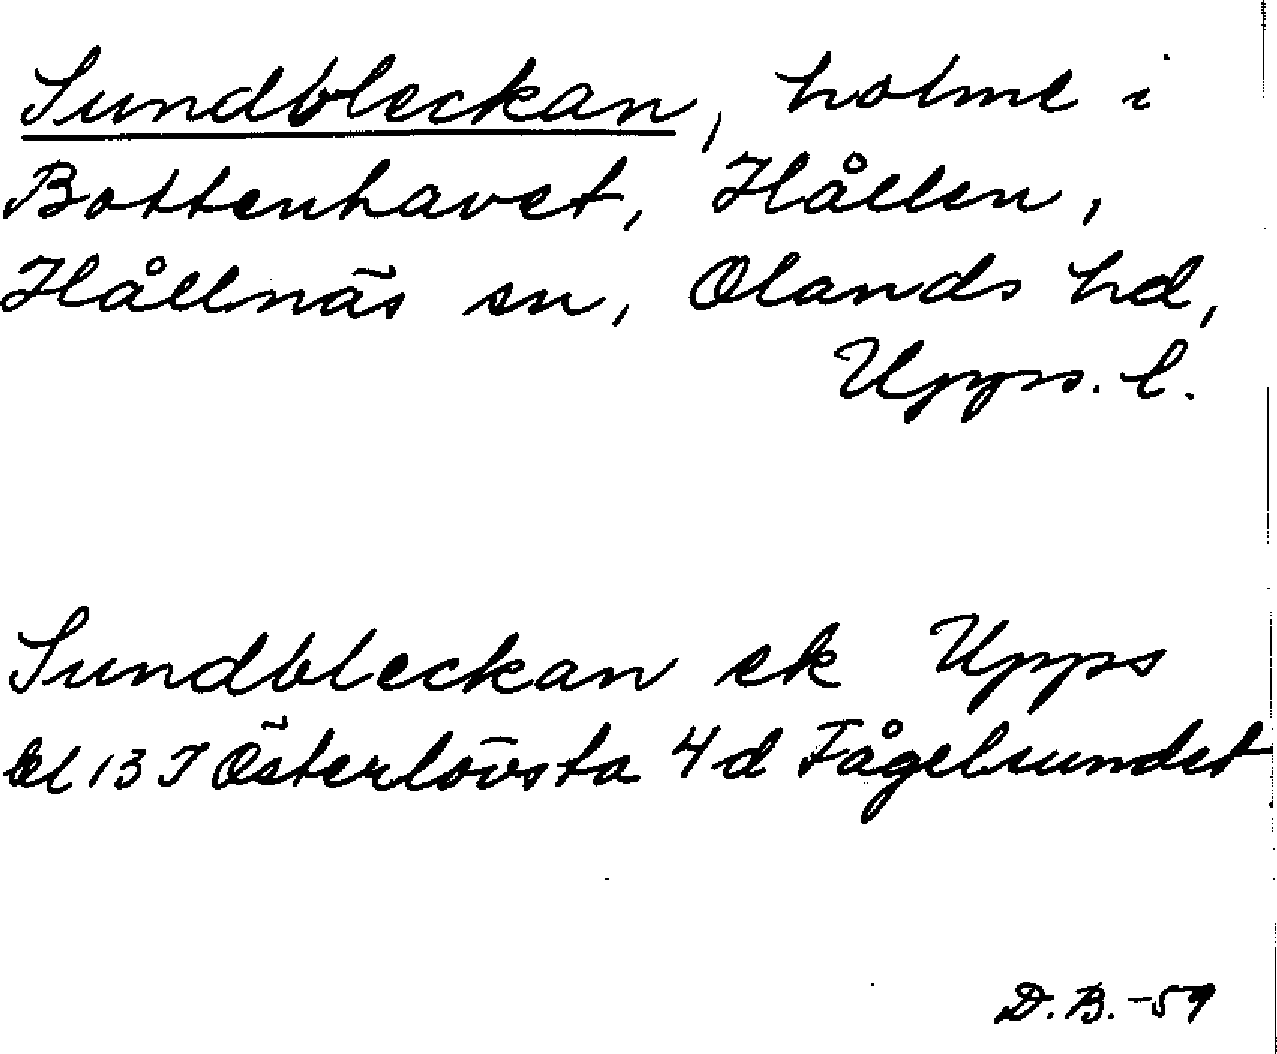 Sundbleckan, holme i
Bottenhavet, Hållen,
Hållnäs sn, Olands hd,
Upps. l.
Sundbleckan ek Upps
bl 13 I Österlövsta 4d Fågelsundet
D. B. -59